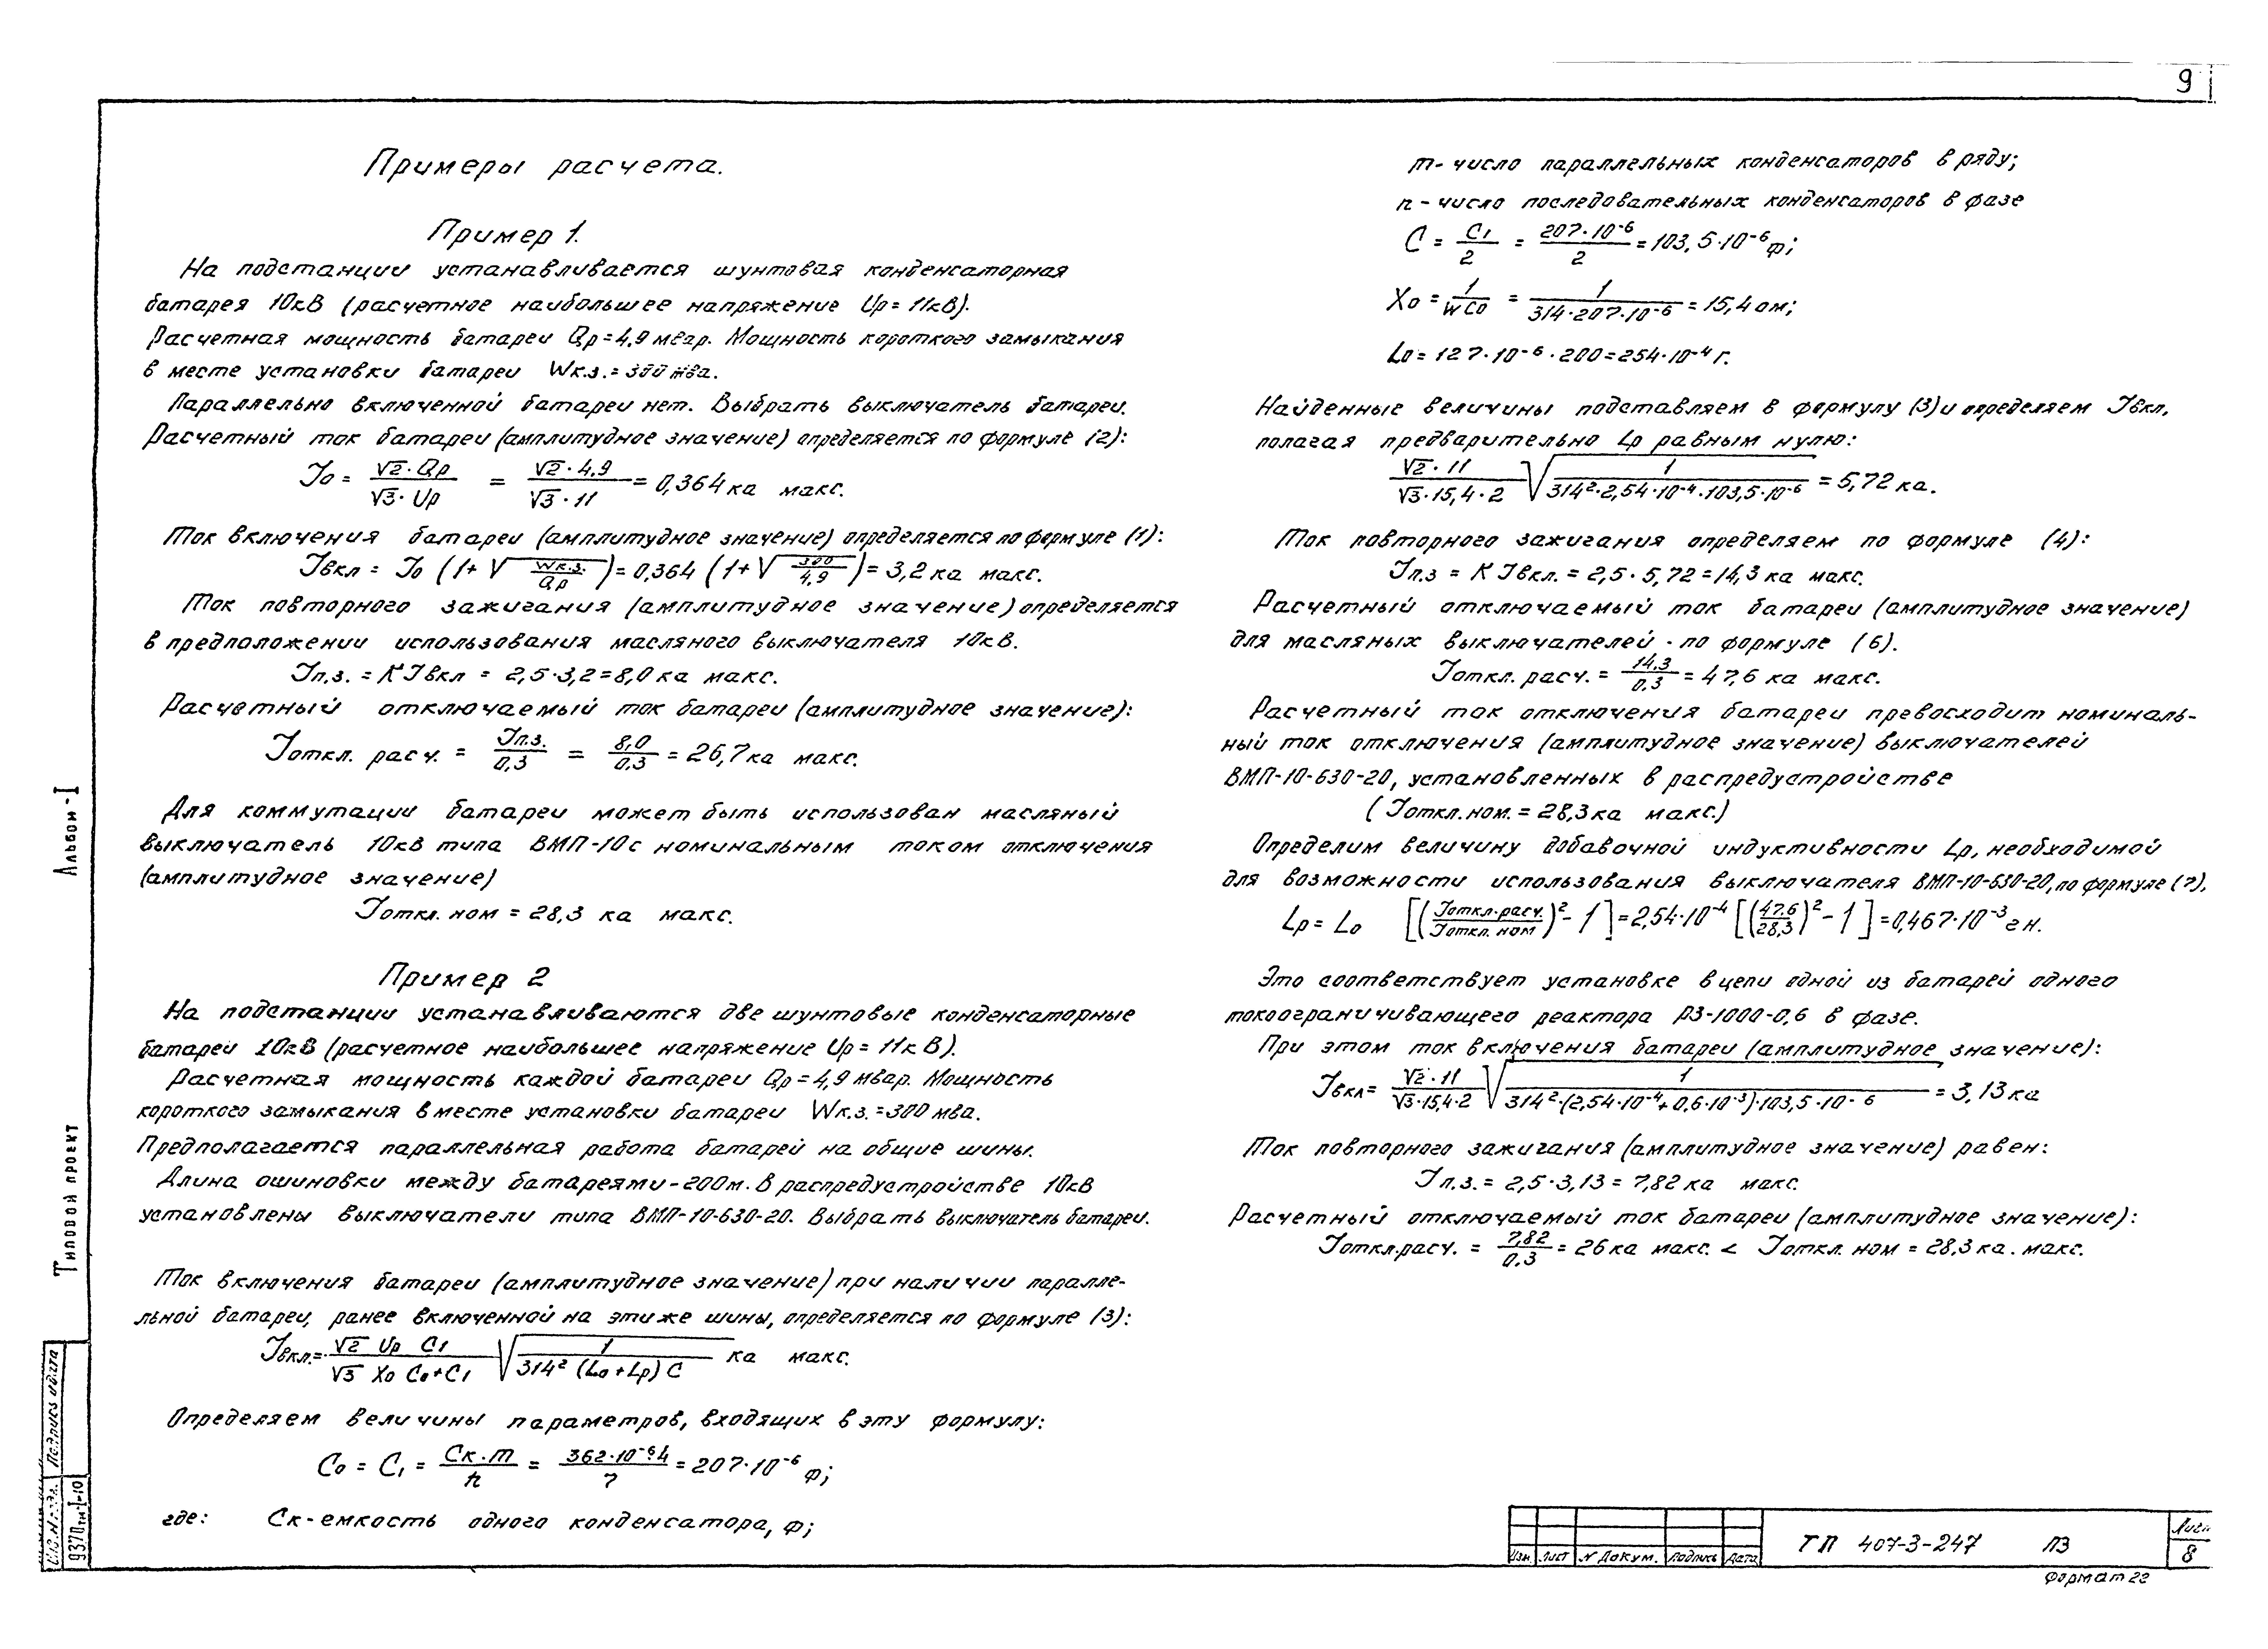 9
Примеры расчета.
Пример 1.
На подстанции устанавливается шунтовая конденсаторная
батарея 10кВ (расчетное наибольшее напряжение Up = 11кВ).
Расчетная мощность батареи Qp = 4,9 мвар. Мощность короткого замыкания
в месте установки батареи Wк.з. = 300 мва.
Параллельно включенной батареи нет. Выбрать выключатель батареи.
Расчетный ток батареи (амплитудное значение) определяется по формуле (2):
Jo = √2 · Qp / √3 · Up = √2 · 4,9 / √3 · 11 = 0,364 ка макс.
Ток включения батареи (амплитудное значение) определяется по формуле (1):
Jвкл = Jo (1+√ Wк.з. / Qp ) = 0,364 (1+√ 300 / 4,9 ) = 3,2 ка макс.
Ток повторного зажигания (амплитудное значение) определяется
в предположении использования масляного выключателя 10кВ.
Jп.з. = К Jвкл = 2,5·3,2 = 8,0 ка макс.
Расчетный отключаемый ток батареи (амплитудное значение):
Jоткл. расч. = Jп.з. / 0,3 = 8,0 / 0,3 = 26,7 ка макс.
Для коммутации батареи может быть использован масляный
выключатель 10кВ типа ВМП-10 с номинальным током отключения
(амплитудное значение)
Jоткл. ном = 28,3 ка макс.
Пример 2
На подстанции устанавливаются две шунтовые конденсаторные
батареи 10кВ (расчетное наибольшее напряжение Up = 11к В).
Расчетная мощность каждой батареи Qp = 4,9 мвар. Мощность
короткого замыкания в месте установки батареи Wк.з. = 300 мва.
Предполагается параллельная работа батарей на общие шины.
Длина ошиновки между батареями - 200м. В распредустройстве 10кВ
установлены выключатели типа ВМП-10-630-20. Выбрать выключатель батареи.
Ток включения батареи (амплитудное значение) при наличии паралле-
льной батареи, ранее включенной на эти же шины, определяется по формуле (3):
Jвкл. = √2 Up C1 / √3 Xo Co+C1 √ 1 / 314² (Lo + Lp) C ка макс.
Определяем величины параметров, входящих в эту формулу:
Co = C1 = Cк · m / n = 362·10⁻⁶·4 / 7 = 207·10⁻⁶ ф;
где: Ск - емкость одного конденсатора, ф;
m - число параллельных конденсаторов в ряду;
n - число последовательных конденсаторов в фазе
C = C1 / 2 = 207·10⁻⁶ / 2 = 103,5·10⁻⁶ ф;
Xo = 1 / WCo = 1 / 314·207·10⁻⁶ = 15,4 ом;
Lo = 127·10⁻⁶ · 200 = 254·10⁻⁴ г.
Найденные величины подставляем в формулу (3) и определяем Jвкл,
полагая предварительно Lp равным нулю:
√2 · 11 / √3 · 15,4 · 2 √ 1 / 314²·2,54·10⁻⁴·103,5·10⁻⁶ = 5,72 ка.
Ток повторного зажигания определяем по формуле (4):
Jп.з = К Jвкл. = 2,5 · 5,72 = 14,3 ка макс.
Расчетный отключаемый ток батареи (амплитудное значение)
для масляных выключателей - по формуле (6).
Jоткл. расч. = 14,3 / 0,3 = 47,6 ка макс.
Расчетный ток отключения батареи превосходит номиналь-
ный ток отключения (амплитудное значение) выключателей
ВМП-10-630-20, установленных в распредустройстве
(Jоткл. ном. = 28,3 ка макс.)
Определим величину добавочной индуктивности Lp, необходимой
для возможности использования выключателя ВМП-10-630-20, по формуле (7).
Lp = Lo [(Jоткл.расч. / Jоткл. ном)² - 1] = 2,54·10⁻⁴ [(47,6 / 28,3)² - 1] = 0,467·10⁻³ гн.
Это соответствует установке в цепи одной из батарей одного
токоограничивающего реактора РЗ-1000-0,6 в фазе.
При этом ток включения батареи (амплитудное значение):
Jвкл = √2 · 11 / √3·15,4·2 √ 1 / 314²·(2,54·10⁻⁴+0,6·10⁻³)·103,5·10⁻⁶ = 3,13 ка
Ток повторного зажигания (амплитудное значение) равен:
Jп.з. = 2,5·3,13 = 7,82 ка макс.
Расчетный отключаемый ток батареи (амплитудное значение):
Jоткл.расч. = 7,82 / 0,3 = 26 ка макс. < Jоткл. ном = 28,3 ка. макс.
Альбом - I
Типовой проект
Подпись и дата
9370тм-I-10
Изм. Лист N Докум. Подпись Дата
ТП 407-3-247 ПЗ
Лист
8
Формат 22